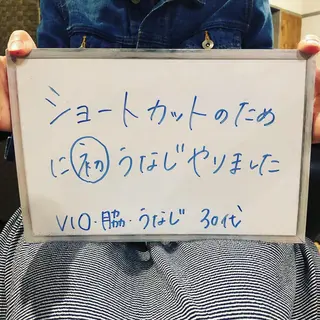 ショートカットのため
に初うなじやりました
VIO・脇・うなじ 30代